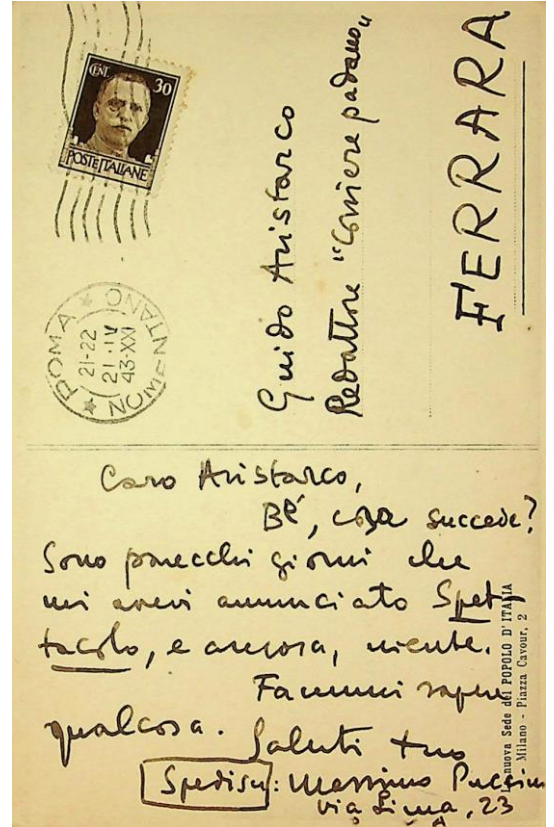 CENT. 30
POSTE ITALIANE
ROMA NOMENTANO
21-22
21 · IV
43·XXI
Guido Aristarco
Redattore "Corriere padano"
FERRARA
Caro Aristarco,
Bé, cosa succede?
Sono parecchi giorni che
mi avevi annunciato Spet
tacolo, e ancora, niente.
Fammi sapere
qualcosa. Saluti tuo
Spedisce: Massimo Puccini
via Lima, 23
nuova Sede del POPOLO D'ITALIA
Milano - Piazza Cavour, 2